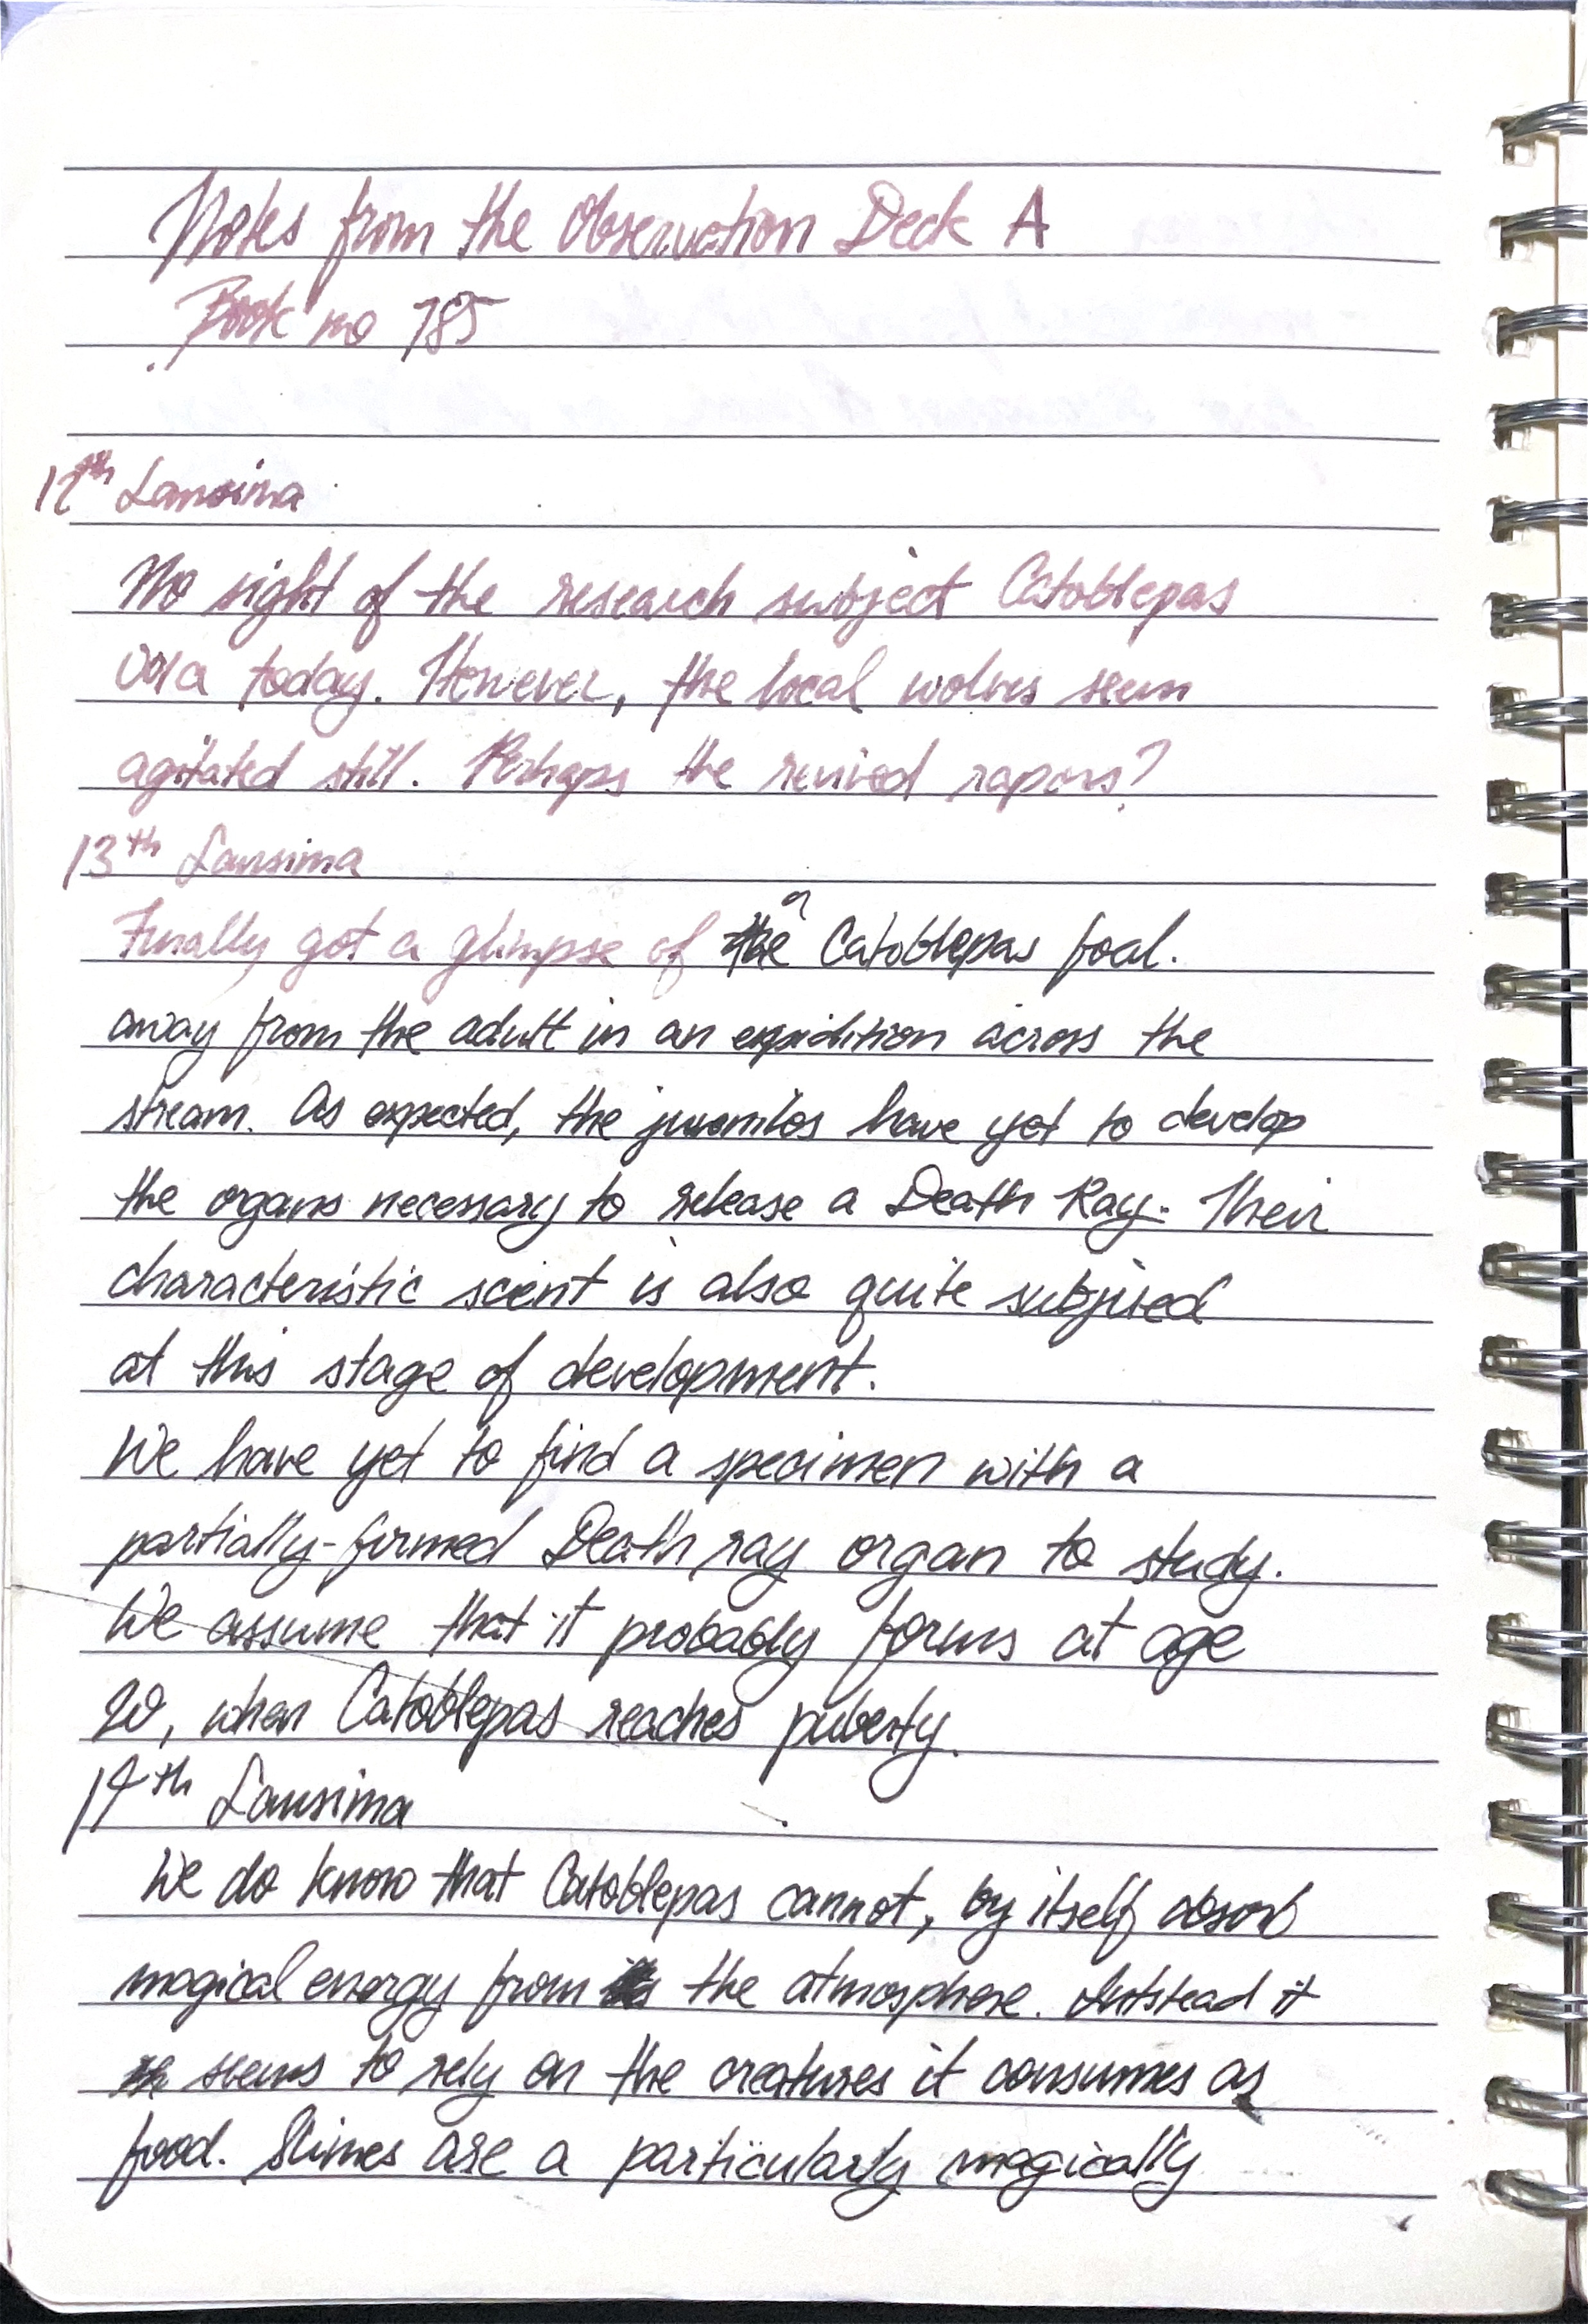 Notes from the Observation Deck A
Book no 785
12th Lansima
No sight of the research subject Catoblepas
vora today. However, the local wolves seem
agitated still. Perhaps the revived rapors?
13th Lansima
Finally got a glimpse of the a Catoblepas foal.
away from the adult in an expidition across the
stream. As expected, the juveniles have yet to develop
the organs necessary to release a Death Ray. Their
characteristic scent is also quite subjused
at this stage of development.
We have yet to find a specimen with a
partially-formed Death ray organ to study.
We assume that it probably forms at age
20, when Catoblepas reaches puberty.
14th Lansima
We do know that Catoblepas cannot, by itself absorb
magical energy from the atmosphere. Intstead it
seems to rely on the creatures it consumes as
food. Slimes are a particularly magically